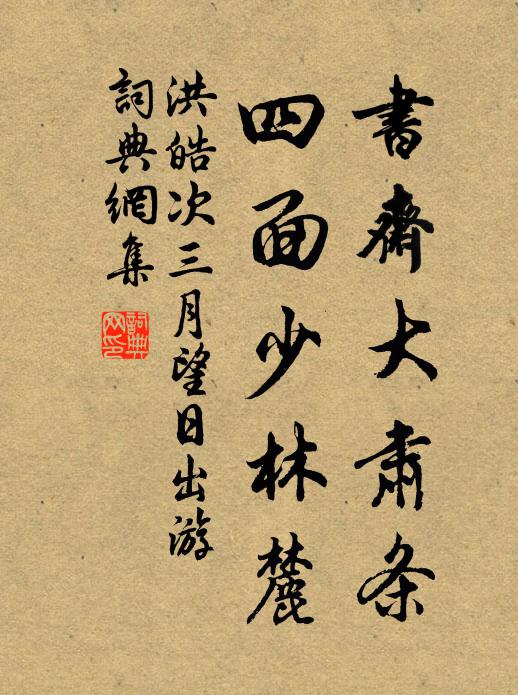 書齋大肅条
四面少林麓
洪皓次三月望日出游
詞典網集
詞典網印